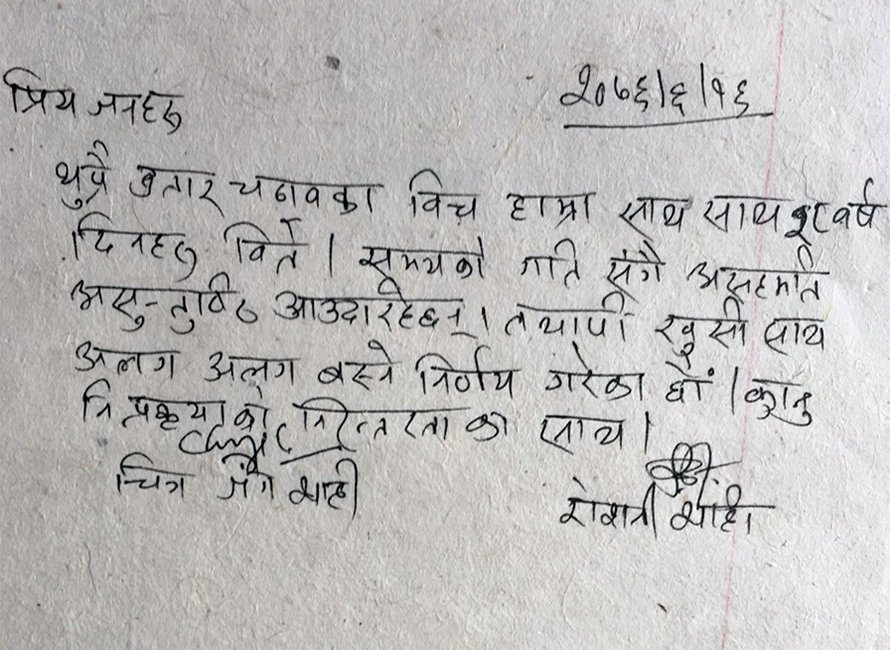 २०७६।६।१६
प्रिय जनहरु
थुप्रै उतार चढावका विच हाम्रा साथ साथ वर्ष
दिनहरु विते । समयको गति संगै असहमति
असन्तुष्ठि आउदारहेछन् । तथापी खुसी साथ
अलग अलग बस्ने निर्णय गरेका छौं । कानु
नि प्रकृयाको निरन्तरताका साथ ।
चित्र जंग शाही
रोशनी शाही